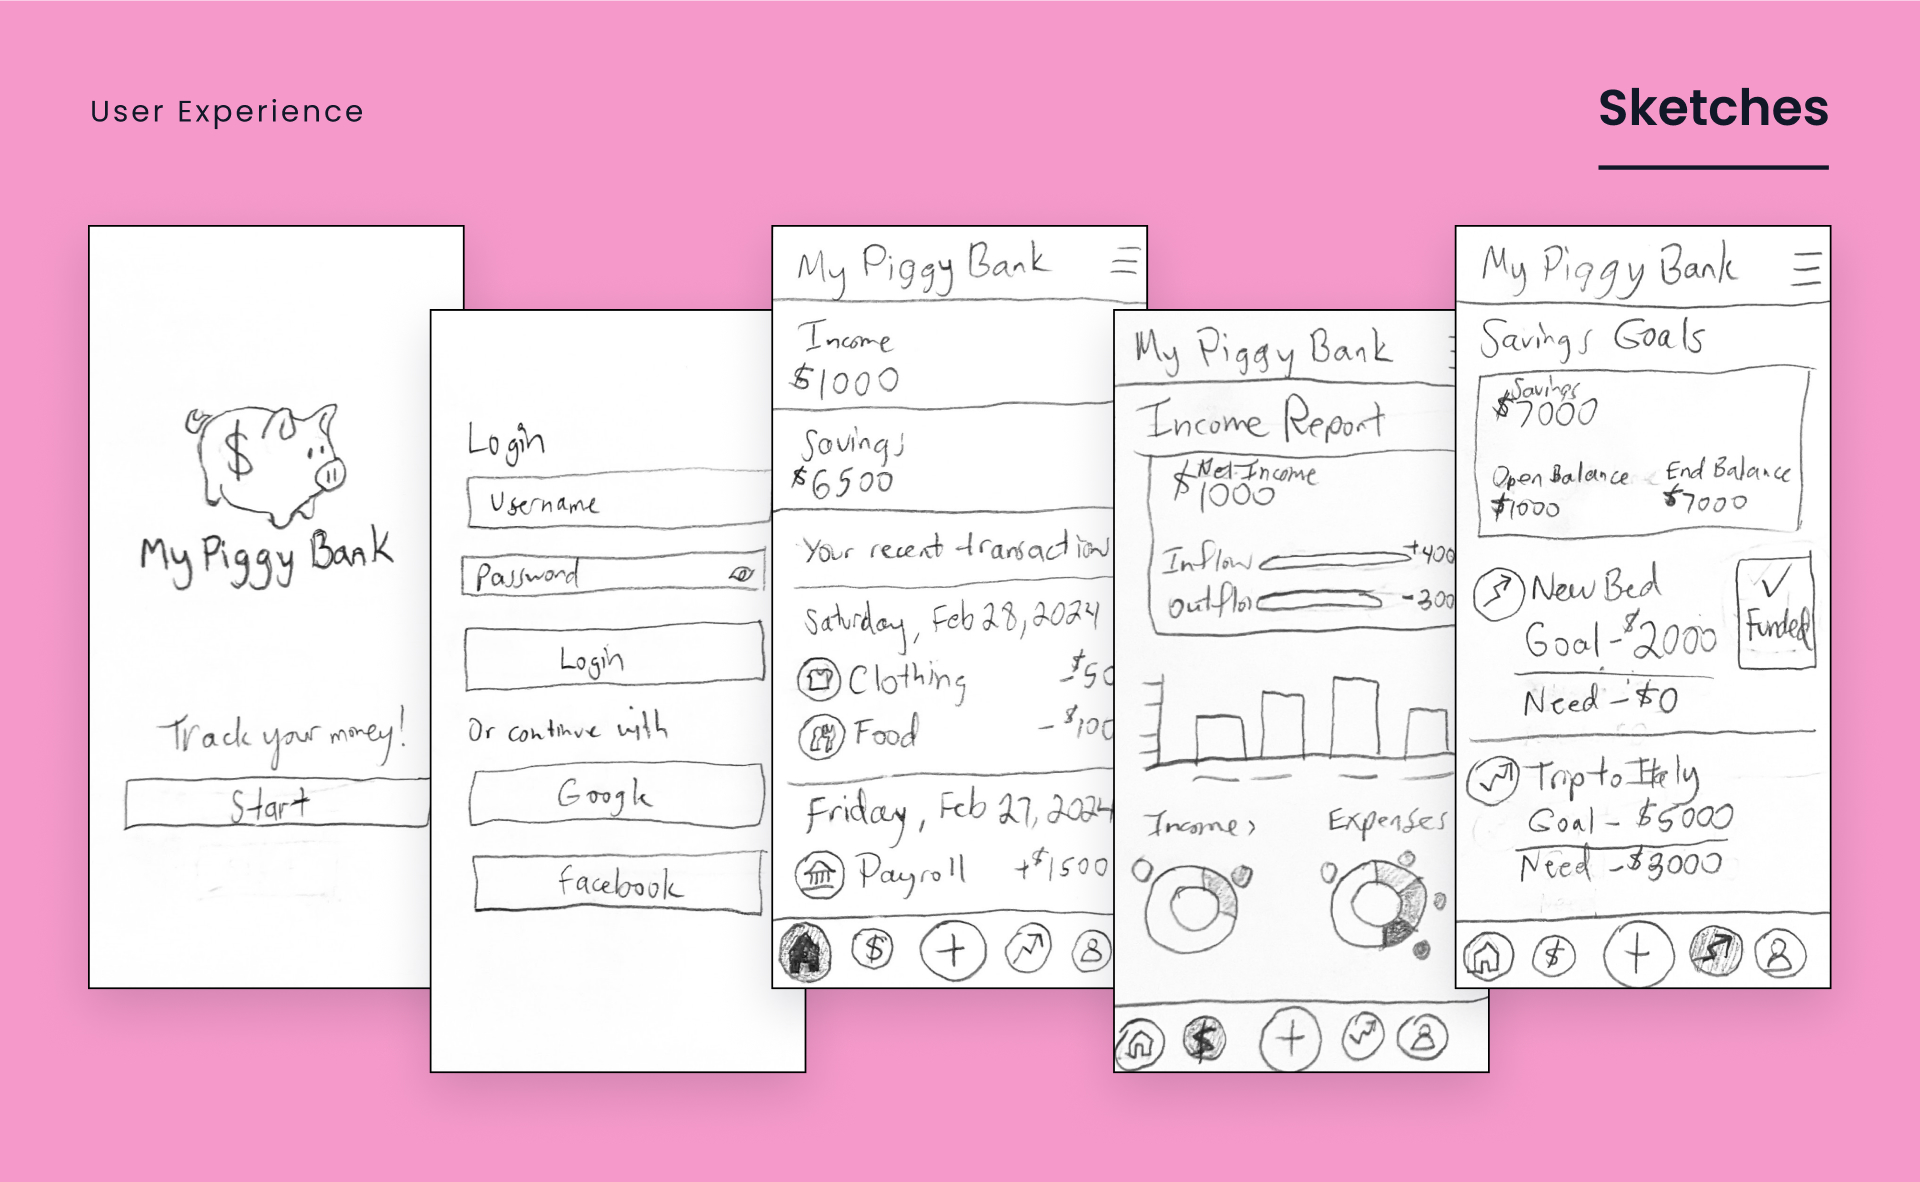 User Experience
Sketches
$
My Piggy Bank
Track your money!
Start
Login
Username
Password
Login
Or continue with
Google
facebook
My Piggy Bank
Income
$1000
Savings
$6500
Your recent transaction
Saturday, Feb 28, 2024
Clothing -$50
Food -$100
Friday, Feb 27, 2024
Payroll +$1500
$
My Piggy Bank
Income Report
Net Income
$1000
Inflow +400
Outflow -300
Income >
Expenses
$
My Piggy Bank
Savings Goals
Savings
$7000
Open Balance End Balance
$1000 $7000
New Bed
Goal - $2000
Need - $0
✓
Funded
Trip to Italy
Goal - $5000
Need - $3000
$